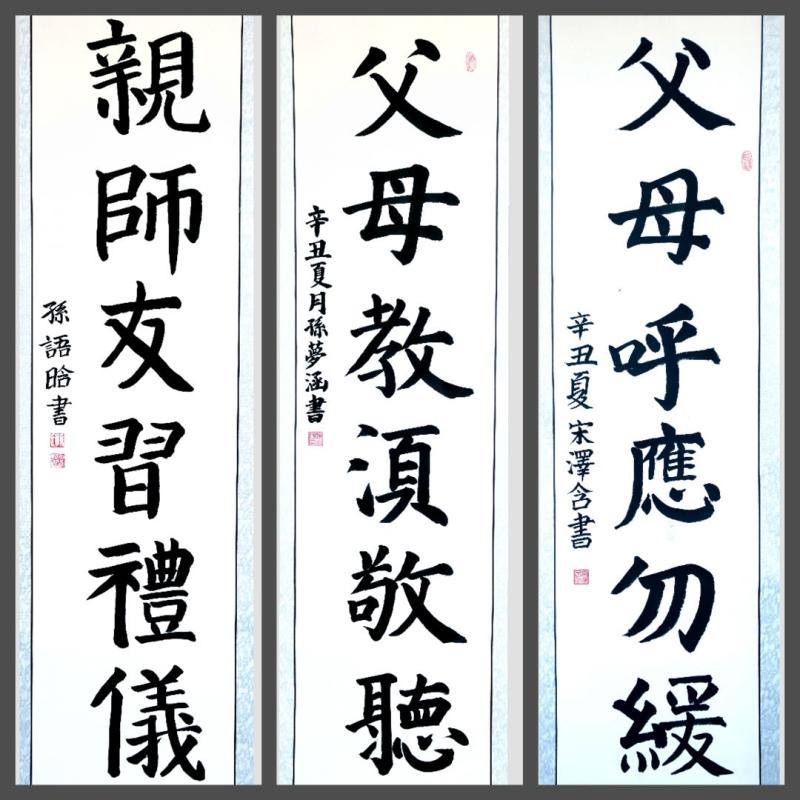 親師友習禮儀
孫語晗書
父母教湏敬聽
辛丑夏月孫夢涵書
父母呼應勿緩
辛丑夏宋澤含書